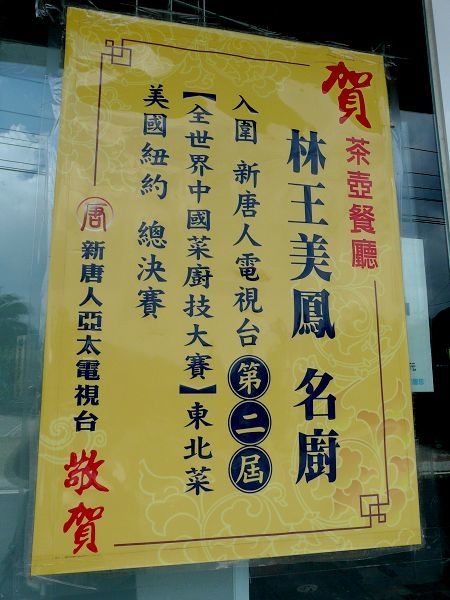 賀 茶壺餐廳
林王美鳳 名廚
入圍 新唐人電視台 第二屆
【全世界中國菜廚技大賽】東北菜
美國紐約 總決賽
唐 新唐人亞太電視台 敬賀